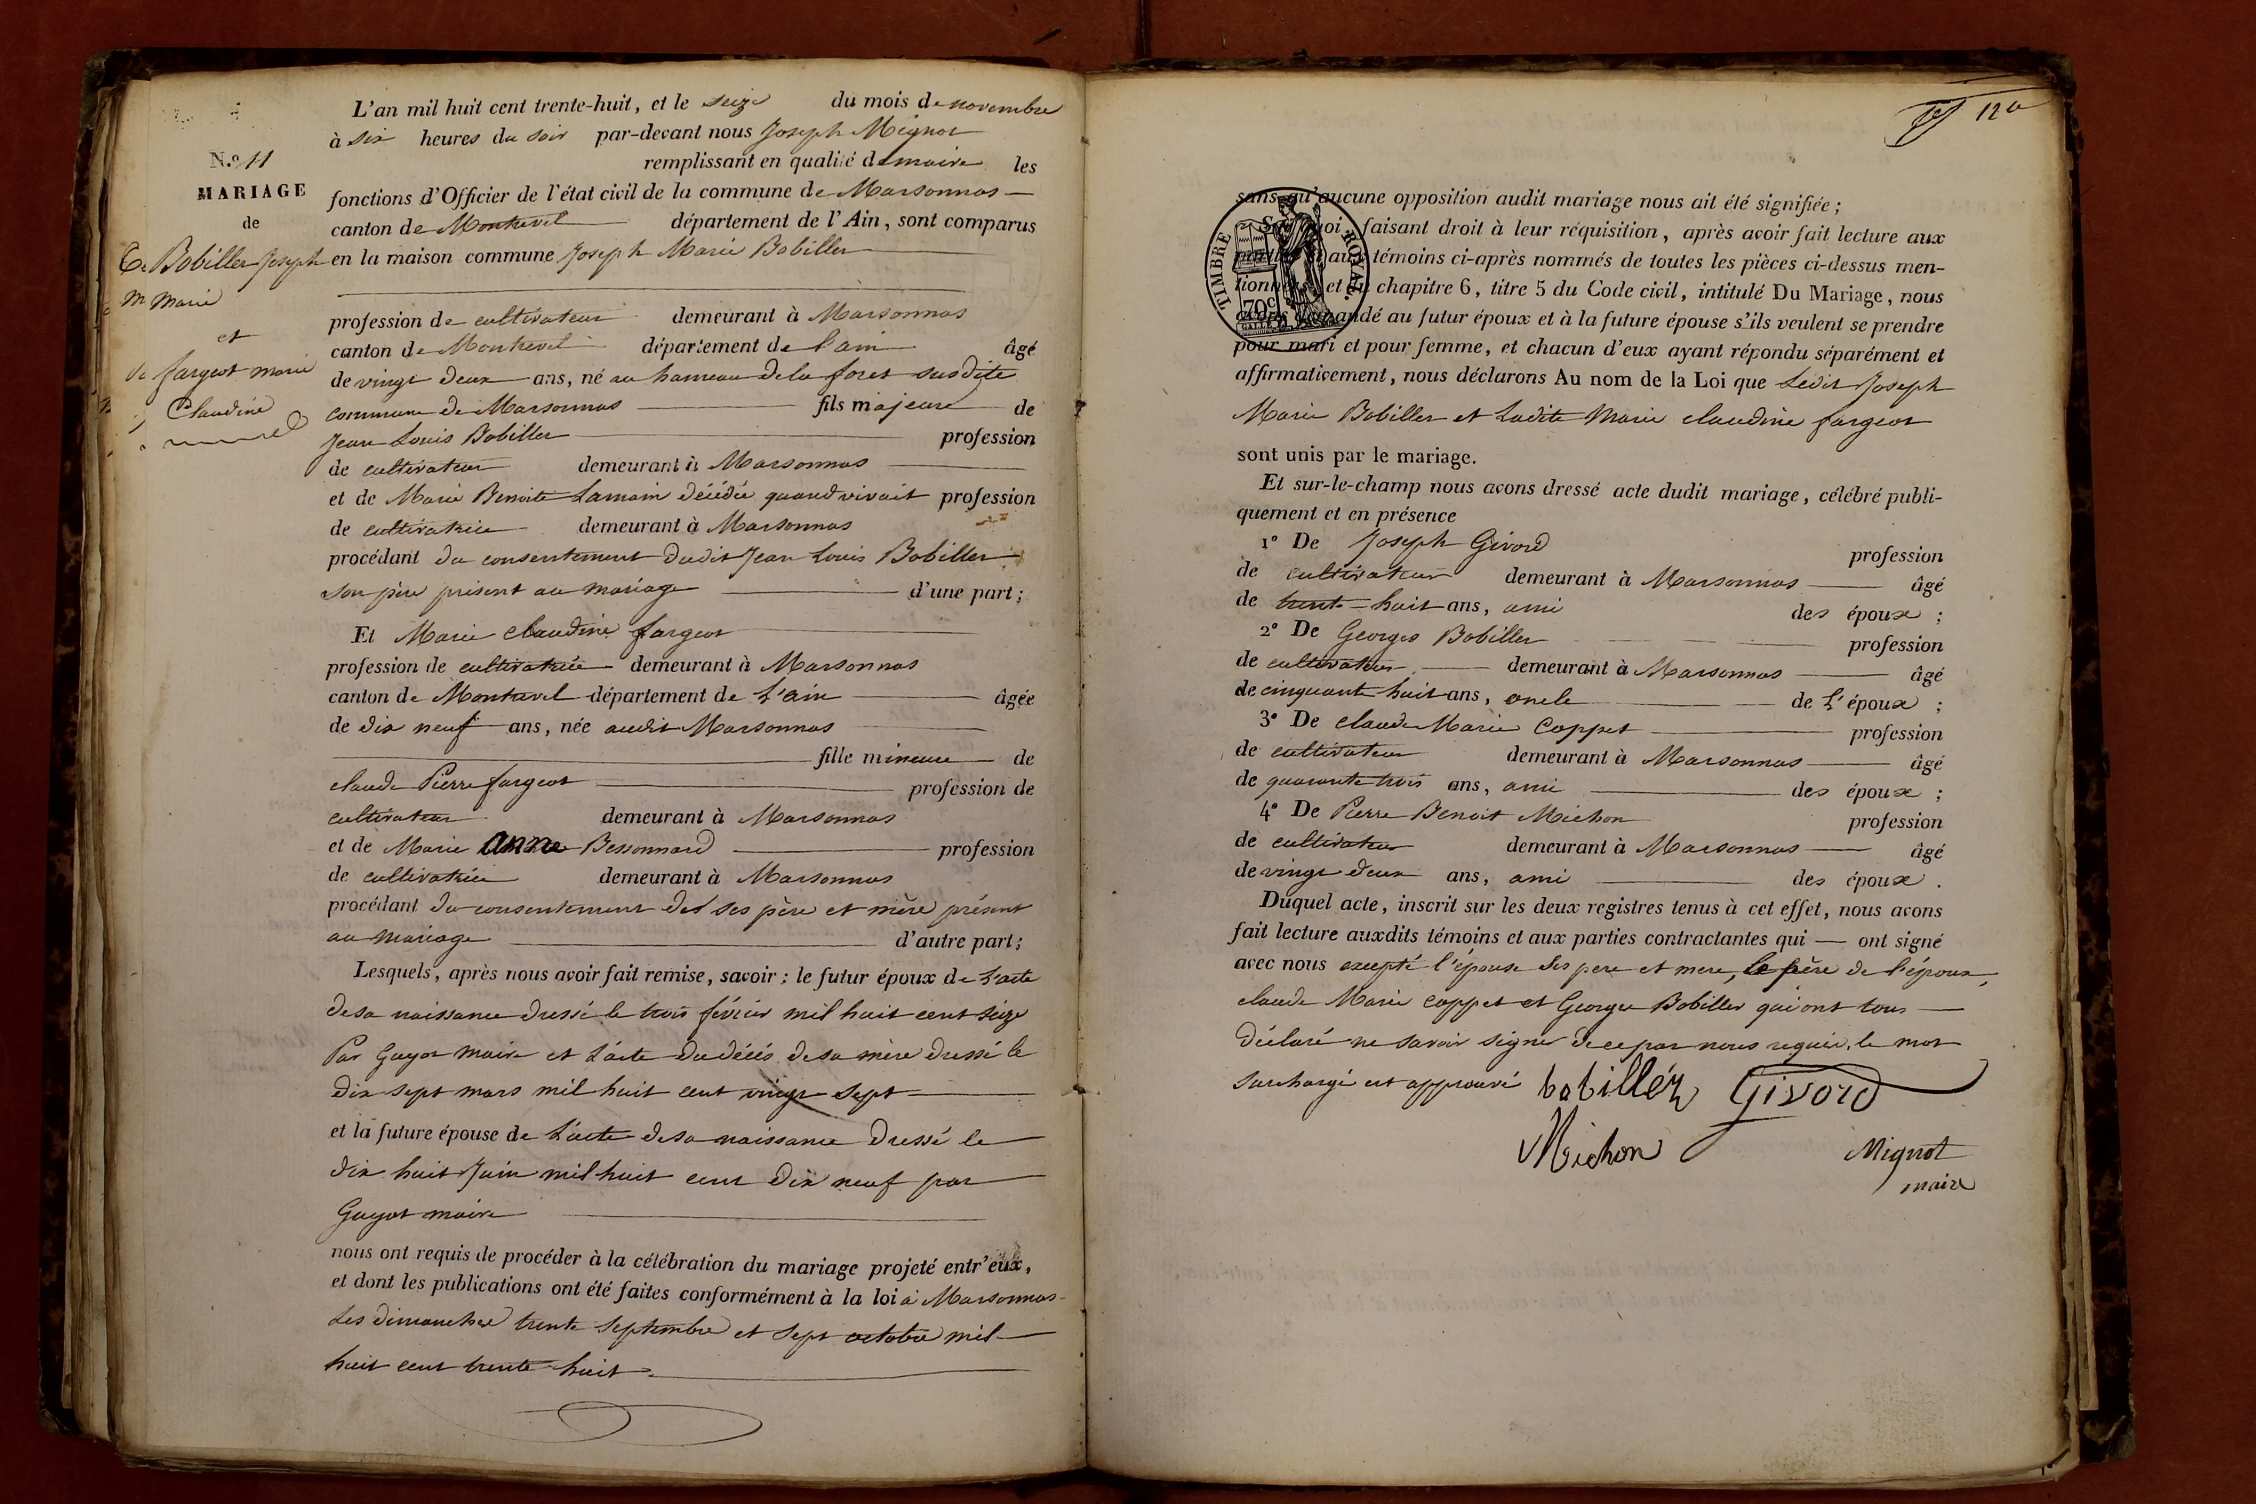 L'an mil huit cent trente-huit, et le seize du mois de novembre
à six heures du soir par-devant nous Joseph Mignot
remplissant en qualité de maire les
fonctions d'Officier de l'état civil de la commune de Marsonnas
canton de Montrevel département de l'Ain, sont comparus
en la maison commune Joseph Marie Bobiller
profession de cultivateur demeurant à Marsonnas
canton de Montrevel département de l'ain âgé
de vingt deux ans, né au hameau de la foret susdite
commune de Marsonnas fils majeur de
Jean Louis Bobiller profession
de cultivateur demeurant à Marsonnas
et de Marie Benoite Lamain décédée quand vivait profession
de cultivatrice demeurant à Marsonnas
procédant du consentement dudit Jean Louis Bobiller
son père présent au mariage d'une part;
Et Marie claudine fargeot
profession de cultivatrice demeurant à Marsonnas
canton de Montrevel département de L'ain âgée
de dix neuf ans, née audit Marsonnas
fille mineure de
claude Pierre fargeot profession de
cultivateur demeurant à Marsonnas
et de Marie anne Bessonnard profession
de cultivatrice demeurant à Marsonnas
procédant du consentement des ses père et mère présent
au mariage d'autre part;
Lesquels, après nous avoir fait remise, savoir: le futur époux de L'acte
de sa naissance dressé le trois février mil huit cent seize
Par Guyot maire et L'acte du décès de sa mère dressé le
dix sept mars mil huit cent vingt sept
et la future épouse de L'acte de sa naissance dressé le
dix huit Juin mil huit cent dix neuf par
Guyot maire
nous ont requis de procéder à la célébration du mariage projeté entr'eux,
et dont les publications ont été faites conformément à la loi à Marsonnas
Les dimanches trente septembre et sept octobre mil
huit cent trente huit
No 11
MARIAGE
de
Bobiller Joseph
Marie
et
fargeot marie
Claudine
120
sans qu'aucune opposition audit mariage nous ait été signifiée;
Sur quoi, faisant droit à leur réquisition, après avoir fait lecture aux
parties et aux témoins ci-après nommés de toutes les pièces ci-dessus men-
tionnées, et du chapitre 6, titre 5 du Code civil, intitulé Du Mariage, nous
avons demandé au futur époux et à la future épouse s'ils veulent se prendre
pour mari et pour femme, et chacun d'eux ayant répondu séparément et
affirmativement, nous déclarons Au nom de la Loi que Ledit Joseph
Marie Bobiller et Ladite Marie claudine fargeot
sont unis par le mariage.
Et sur-le-champ nous avons dressé acte dudit mariage, célébré publi-
quement et en présence
1° De Joseph Givord profession
de cultivateur demeurant à Marsonnas âgé
de trente-huit ans, ami des époux;
2° De Georges Bobiller profession
de cultivateur demeurant à Marsonnas âgé
de cinquante huit ans, oncle de L'époux;
3° De claude Marie Coppet profession
de cultivateur demeurant à Marsonnas âgé
de quarante trois ans, ami des époux;
4° De Pierre Benoit Michon profession
de cultivateur demeurant à Marsonnas âgé
de vingt deux ans, ami des époux.
Duquel acte, inscrit sur les deux registres tenus à cet effet, nous avons
fait lecture auxdits témoins et aux parties contractantes qui ont signé
avec nous excepté l'épouse ses pere et mere, le père de l'époux,
claude Marie coppet et Georges Bobiller qui ont tous
déclaré ne savoir signer de ce par nous requis, le mot
surchargé est approuvé bobillér Givord
Michon Mignot
maire
TIMBRE ROYAL.
70c